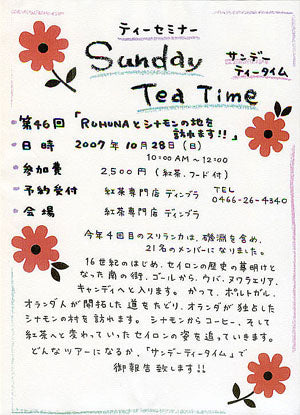 ティーセミナー
Sunday
サンデー
ティータイム
Tea Time
第46回 「RUHUNAとシナモンの地を
訪れます!!」
日時 2007年10月28日(日)
10:00AM〜12:00
参加費 2,500円(紅茶、フード付)
予約受付 紅茶専門店 ディンブラ TEL
0466-26-4340
会場 紅茶専門店 ディンブラ
今年4回目のスリランカは、磯淵を含め、
21名のメンバーになりました。
16世紀のはじめ、セイロンの歴史の幕明けと
なった南の街、ゴールから、ウバ、ヌワラエリア、
キャンディへと入ります。かつて、ポルトガル、
オランダ人が開拓した道をたどり、オランダが独占した
シナモンの村を訪れます。シナモンからコーヒー、そして
紅茶へと変わっていったセイロンの姿を追っていきます。
どんなツアーになるか、「サンデーティータイム」で
御報告致します!!